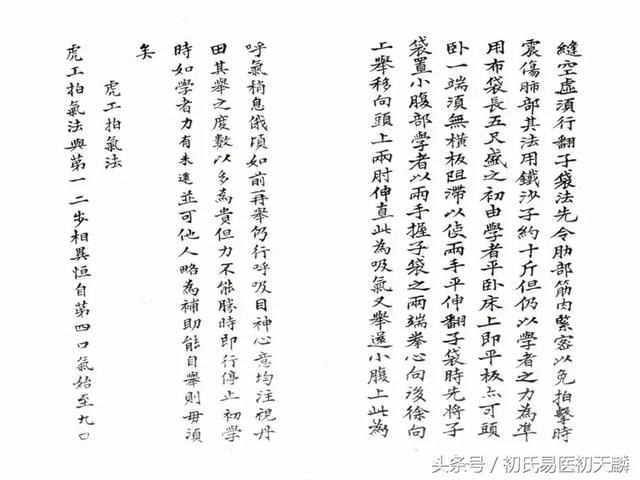 縫空虛須行翻子袋法先令肋部筋肉緊密以免拍擊時
震傷肺部其法用鐵沙子約十斤但仍以學者之力為準
用布袋長五尺盛之初由學者平臥床上即平板亦可頭
卧一端須無橫板阻滯以便兩手平伸翻子袋時先將子
袋置小腹部學者以兩手握子袋之兩端拳心向後徐向
上舉移向頭上兩肘伸直此為吸氣又舉還小腹上此為
呼氣稍息俄頃如前再舉仍行呼吸目神心意均注視丹
田其舉之度數以多為貴但力不能勝時即行停止初學
時如學者力有未逮並可他人略為補助能自舉則毋須
矣
虎工拍氣法
虎工拍氣法與第一二步相異恒自第四口氣始至九口
头条号 / 初氏易医初天麟